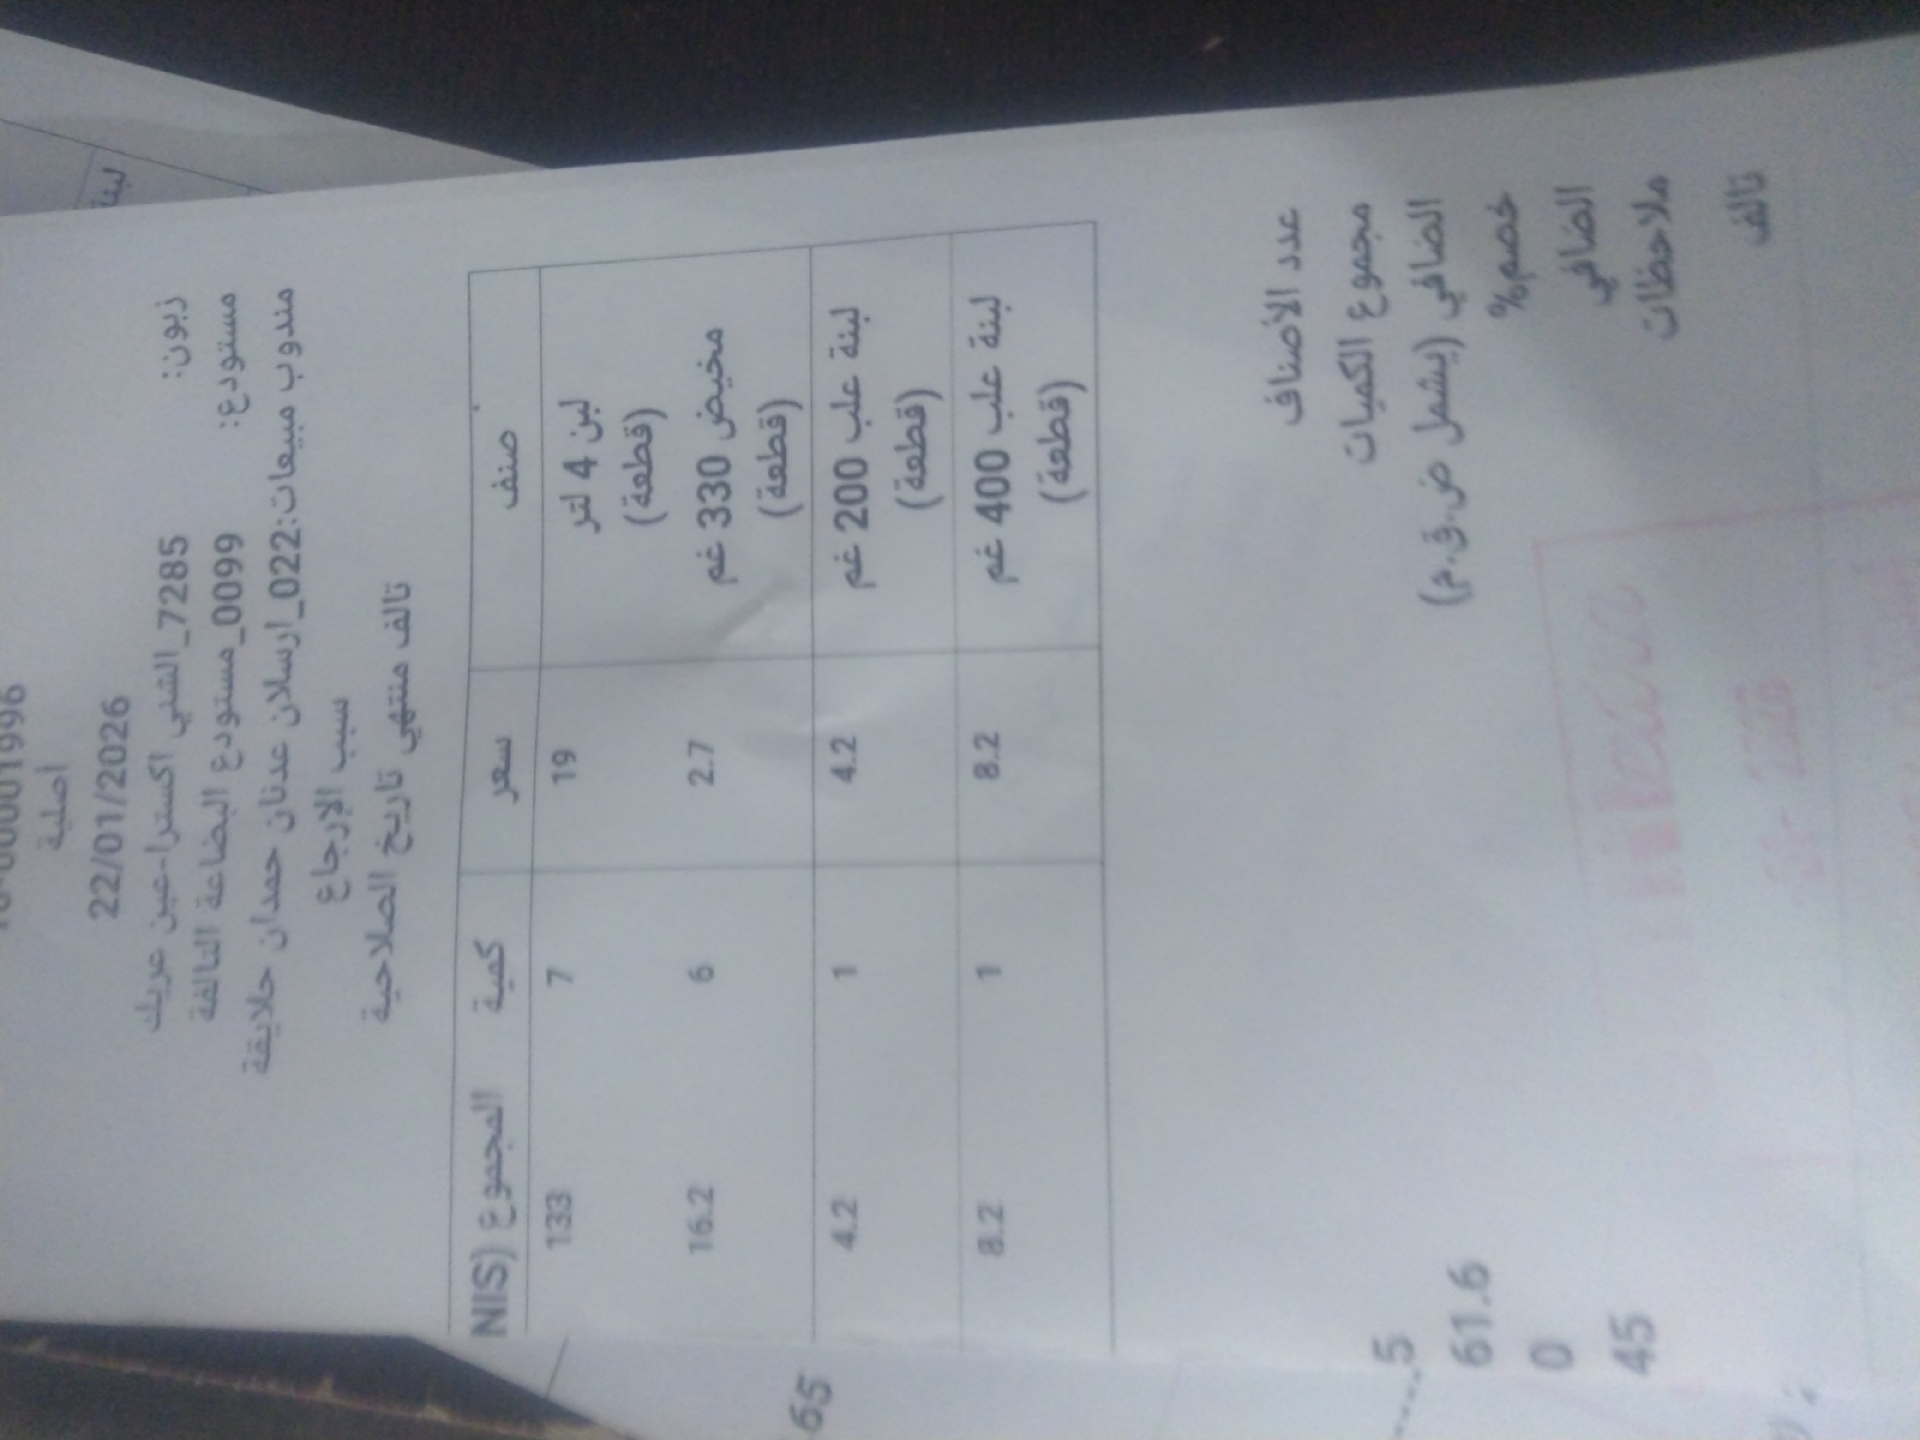 اصلية
22/01/2026
زبون: 7285_الشني اكسترا-عين عريك
مستودع: 0099_مستودع البضاعة التالفة
مندوب مبيعات:022_ارسلان عدنان حمدان حلايقة
سبب الإرجاع
تالف منتهي تاريخ الصلاحية
صنف سعر كمية المجموع (NIS
لبن 4 لتر 19 7 133
(قطعة)
مخيض 330 غم 2.7 6 16.2
(قطعة)
لبنة علب 200 غم 4.2 1 4.2
(قطعة)
لبنة علب 400 غم 8.2 1 8.2
(قطعة)
عدد الأصناف
مجموع الكميات
الصافي (يشمل ض.ق.م)
خصم%
الصافي
ملاحظات
تالف
65
5
61.6
0
45
لبنة